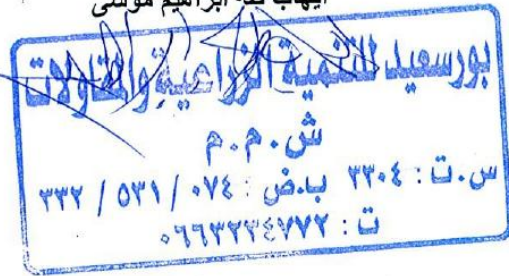 ايهاب طه ابراهيم موسى
بورسعيد للتنمية الزراعية والمقاولات
ش.م.م
س.ت : ٣٣٠٤ ب.ض : ٠٧٤ / ٥٣١ / ٣٣٢
ت : ٠٦٦٣٢٣٤٧٧٢